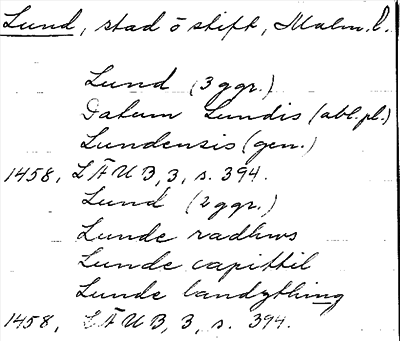 Lund, stad o stift, Malm. l.
Lund (3 ggr.)
Datum Lundis (abl. pl.)
Lundensis (gen.)
1458, LÄUB, 3, s. 394.
Lund (2 ggr.)
Lunde radhws
Lunde capittil
Lunde landzthing
1458, LÄUB, 3, s. 394.